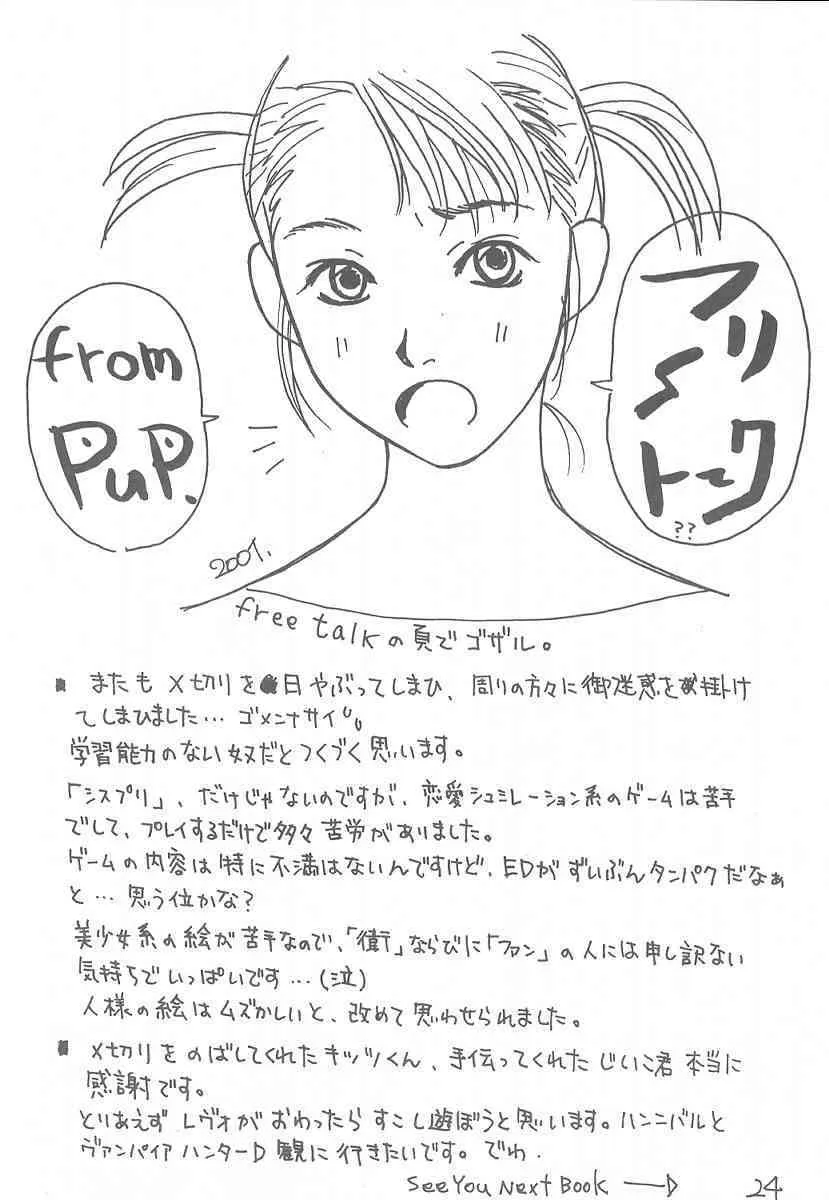 from
PuP.
フリ〜トーク
??
2001.
free talkの頁でゴザル。
■ またも〆切りを 日やぶってしまひ、周りの方々に御迷惑を掛け
てしまひました…ゴメンナサイ。
学習能力のない奴だとつくづく思います。
「シスプリ」、だけじゃないのですが、恋愛シュミレーション系のゲームは苦手
でして、プレイするだけで多々苦労がありました。
ゲームの内容は特に不満はないんですけど、EDがずいぶんタンパクだなぁ
と…思う位かな?
美少女系の絵が苦手なので、「衛」ならびに「ファン」の人には申し訳ない
気持ちでいっぱいです…(泣)
人様の絵はムズかしいと、改めて思わせられました。
■ 〆切りをのばしてくれたキッツくん、手伝ってくれたじいこ君本当に
感謝です。
とりあえずレヴォがおわったらすこし遊ぼうと思います。ハンニバルと
ヴァンパイアハンターD観に行きたいです。でわ.
See You Next Book —▷
24